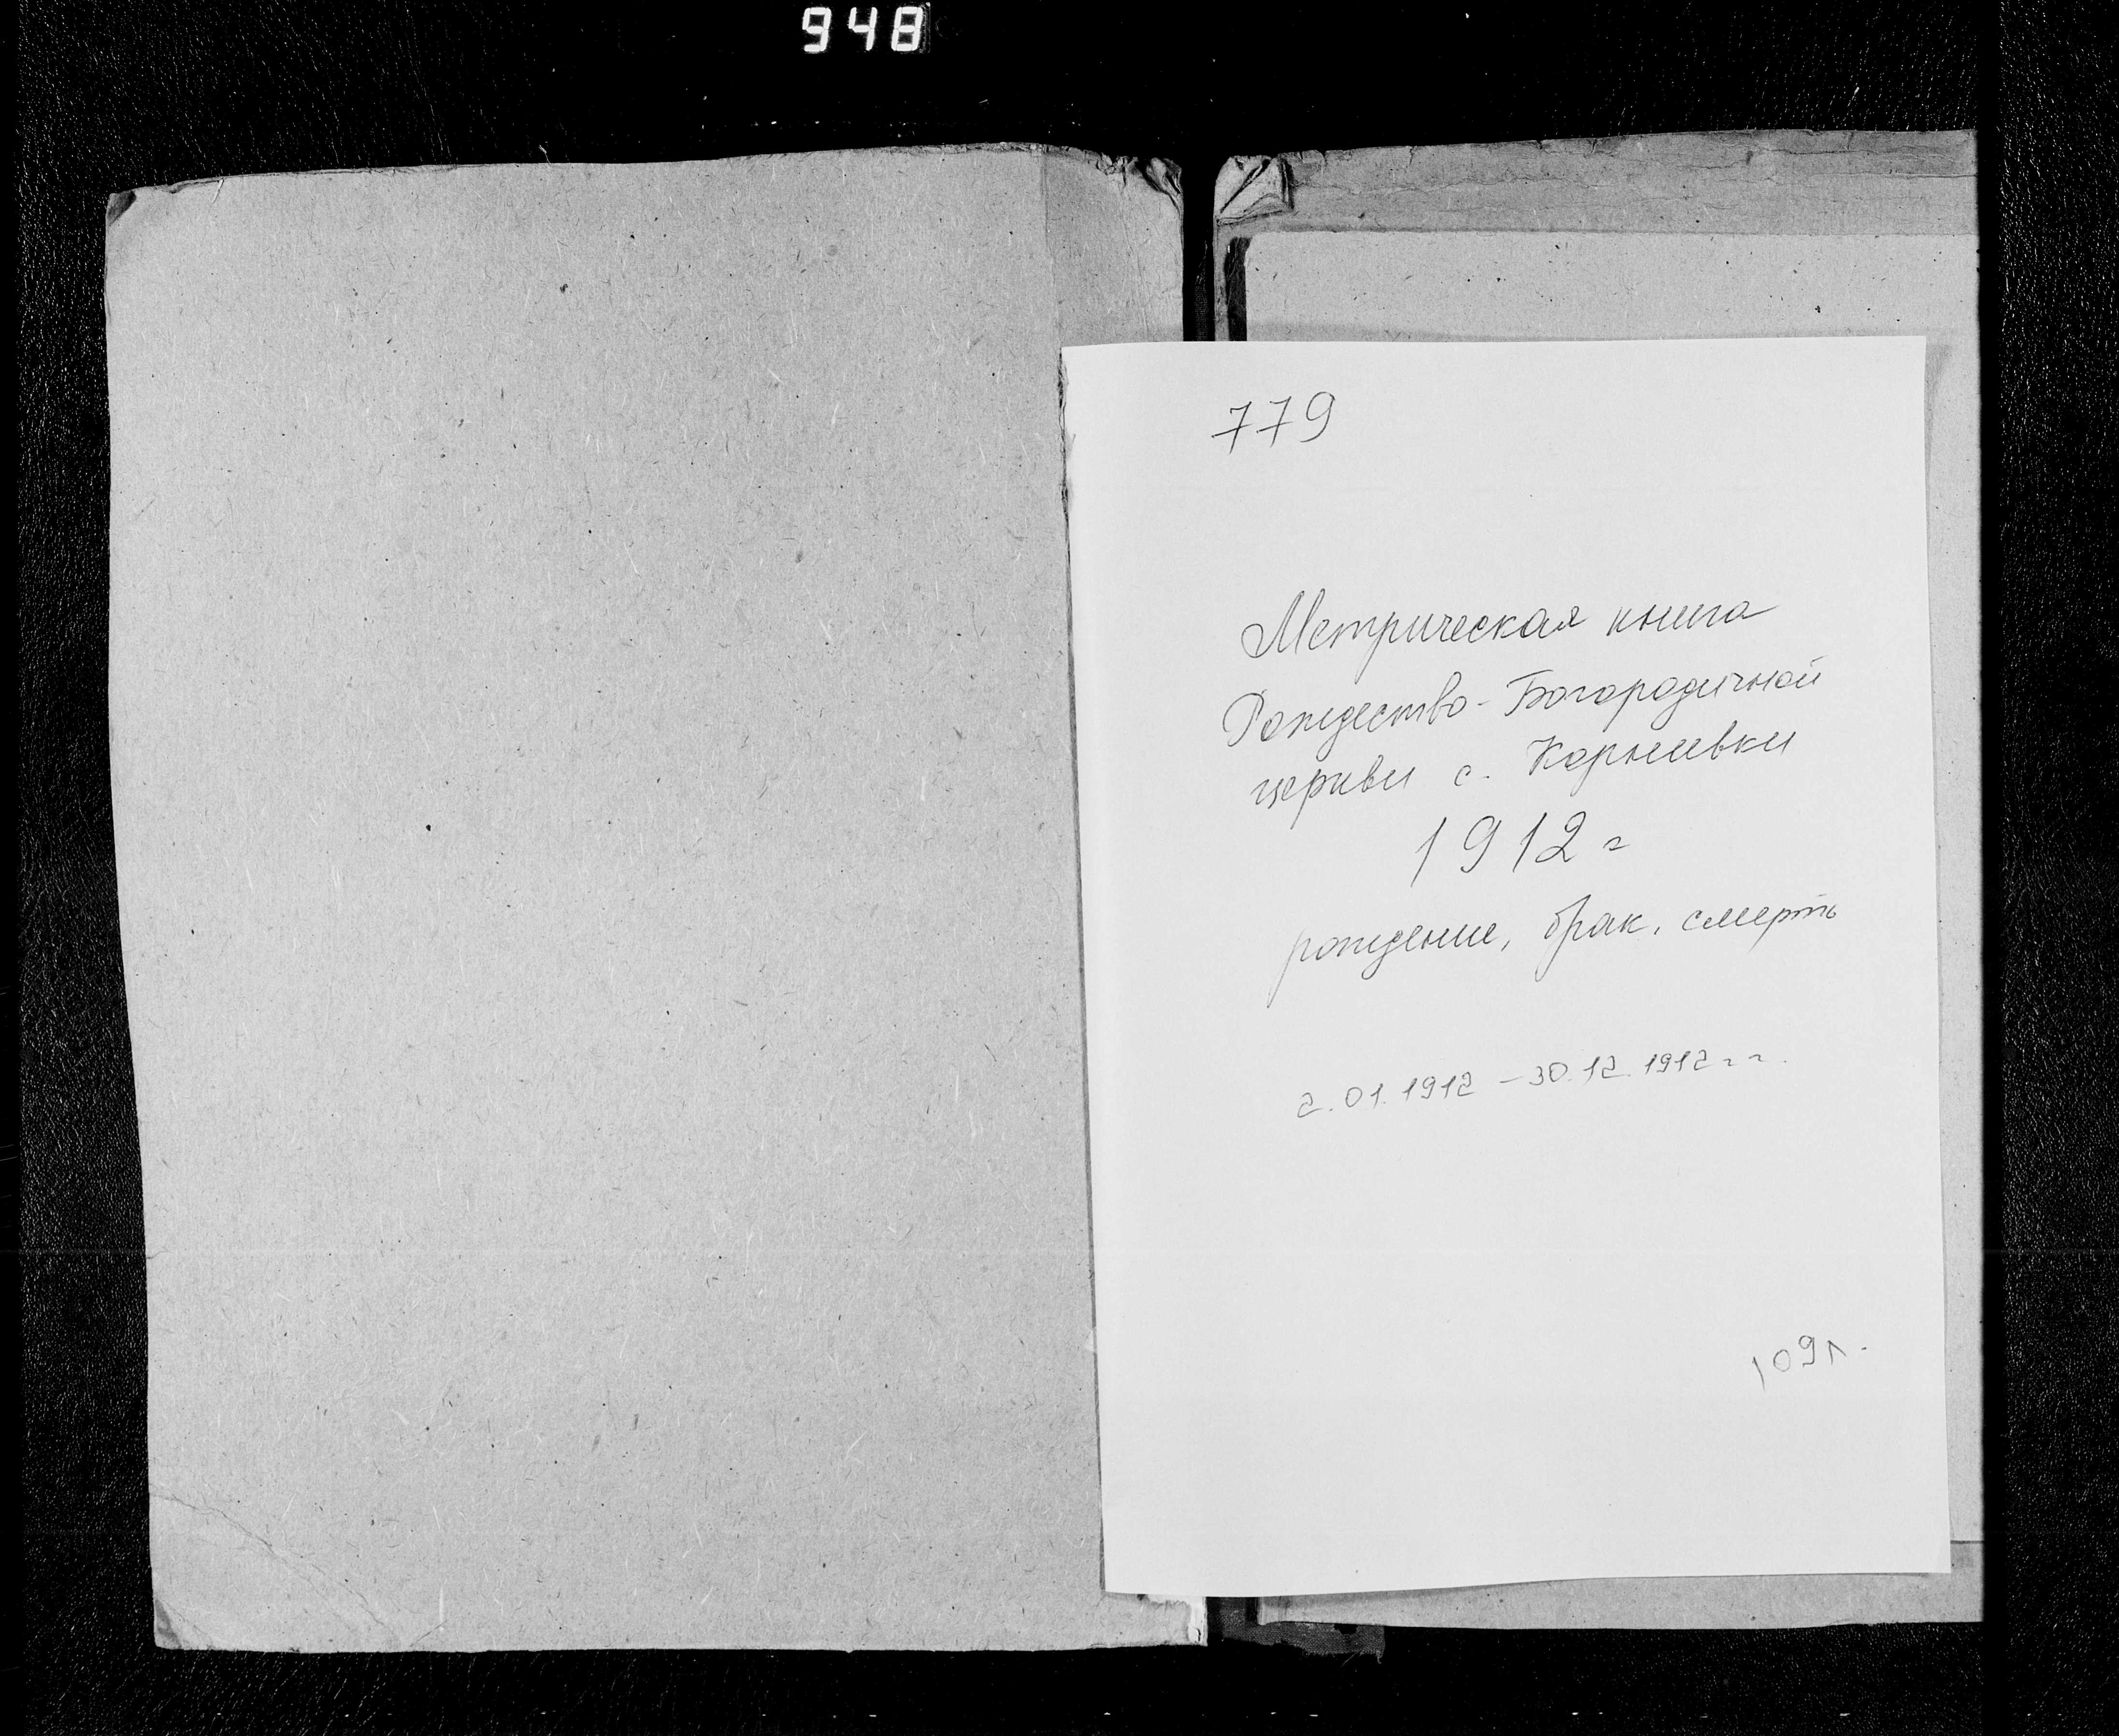 948
779
Метрическая книга
Рождество-Богородичной
церкви с. Корниевки
1912 г
рождение, брак, смерть
2.01.1912 - 30.12.1912 г г.
109 л.